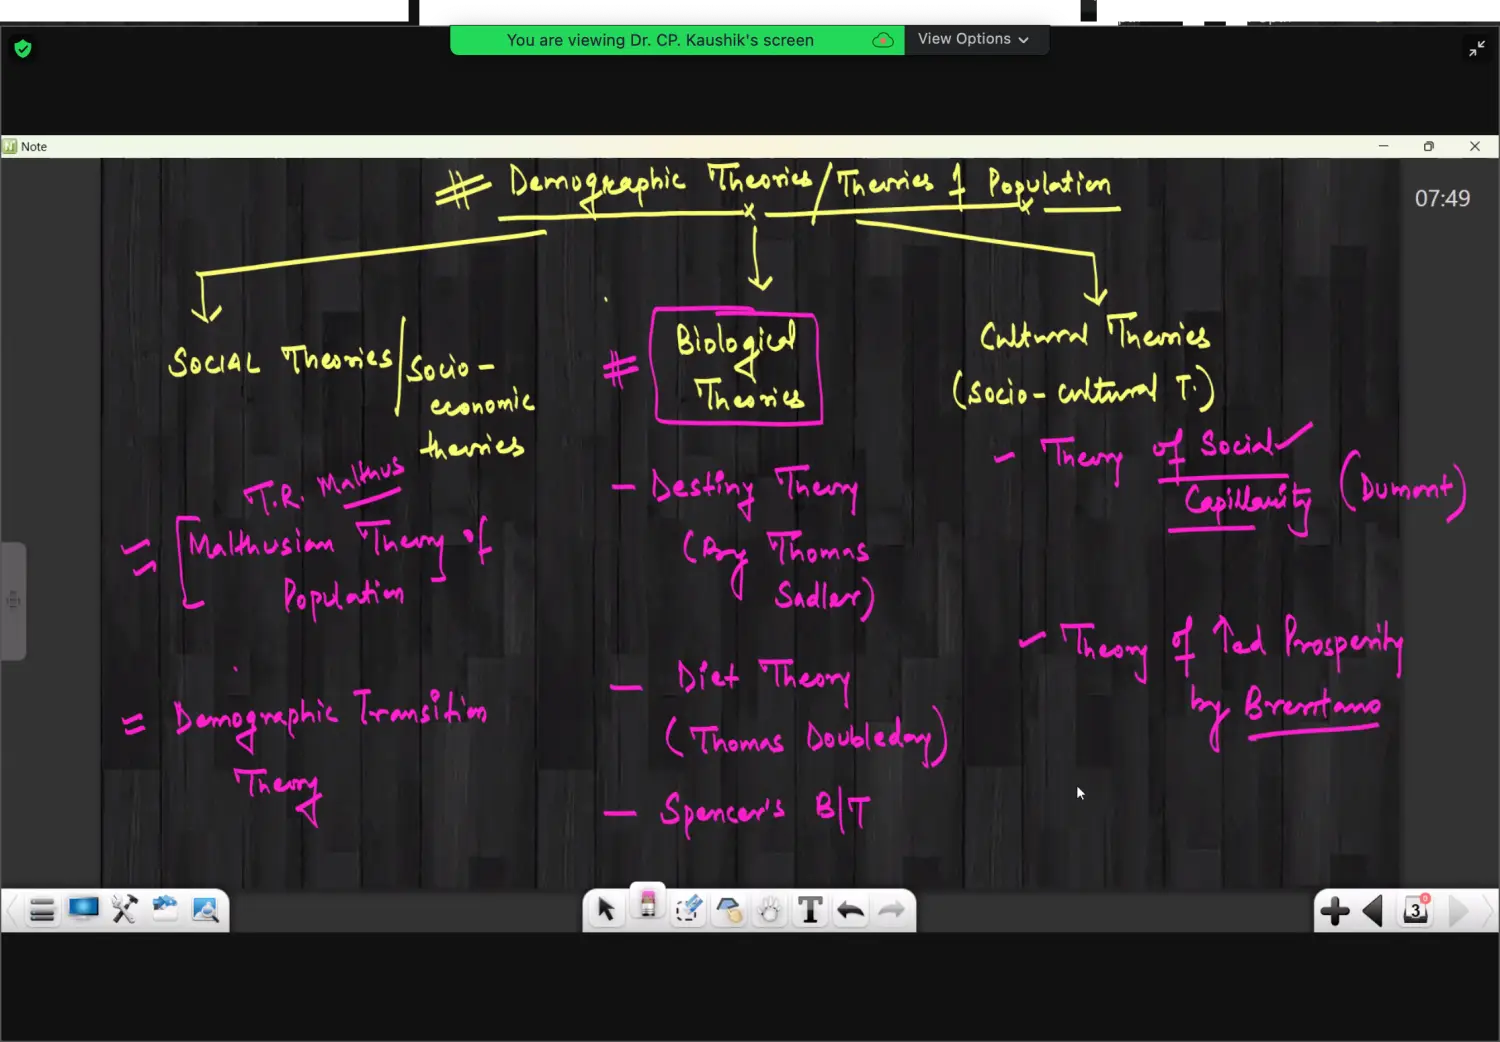 You are viewing Dr. CP. Kaushik's screen
View Options
Note
07:49
# Demographic Theories / Theories of Population
SOCIAL Theories / Socio-
economic
theories
T.R. Malthus
= [Malthusian Theory] of
Population
= Demographic Transition
Theory
# Biological
Theories
- Destiny Theory
(By Thomas
Sadler)
- Diet Theory
(Thomas Doubleday)
- Spencer's B/T
Cultural Theories
(Socio-cultural T.)
- Theory of Social ✓
Capillarity (Dumont)
- Theory of ↑ed Prosperity
by Brentano
T
3